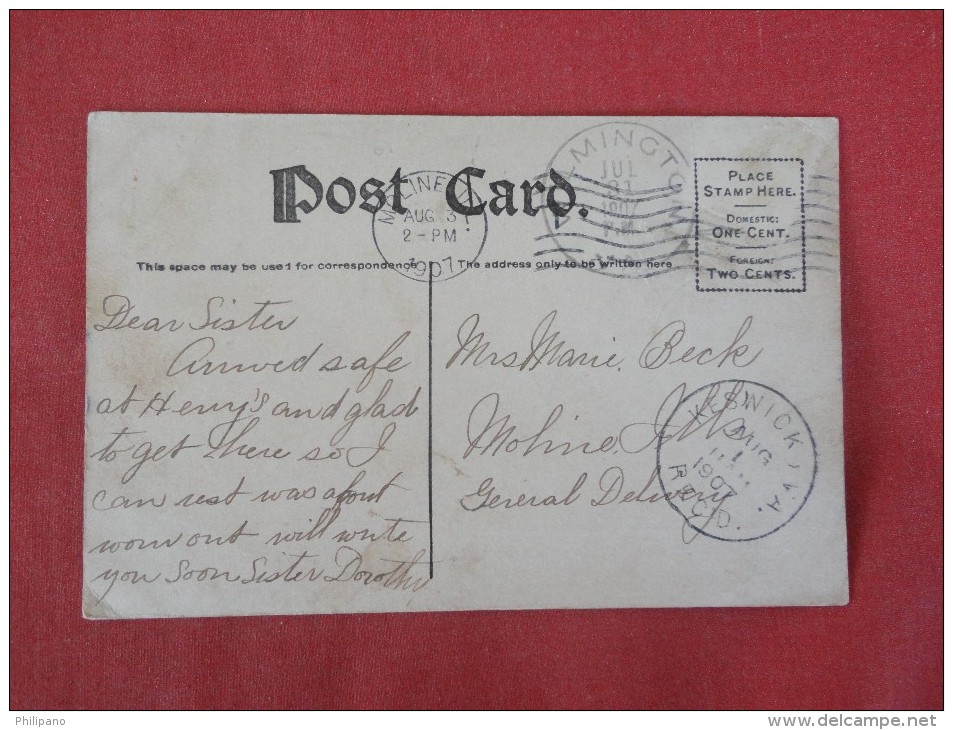 Post Card.
MOLINE, ILL.
AUG 3
2-PM
1907
MINGTO
JUL
31
1907
PLACE
STAMP HERE.
DOMESTIC:
ONE CENT.
FOREIGN:
TWO CENTS.
This space may be used for correspondence
The address only to be written here
Dear Sister
Arrived safe
at Henry's and glad
to get there so I
can rest was about
worn out will write
you soon Sister Dorothy
Mrs Marie Beck
Moline Ills
General Delivery
KESWICK, VA.
AUG
1
1907
REC'D.
Philipano
www.delcampe.net